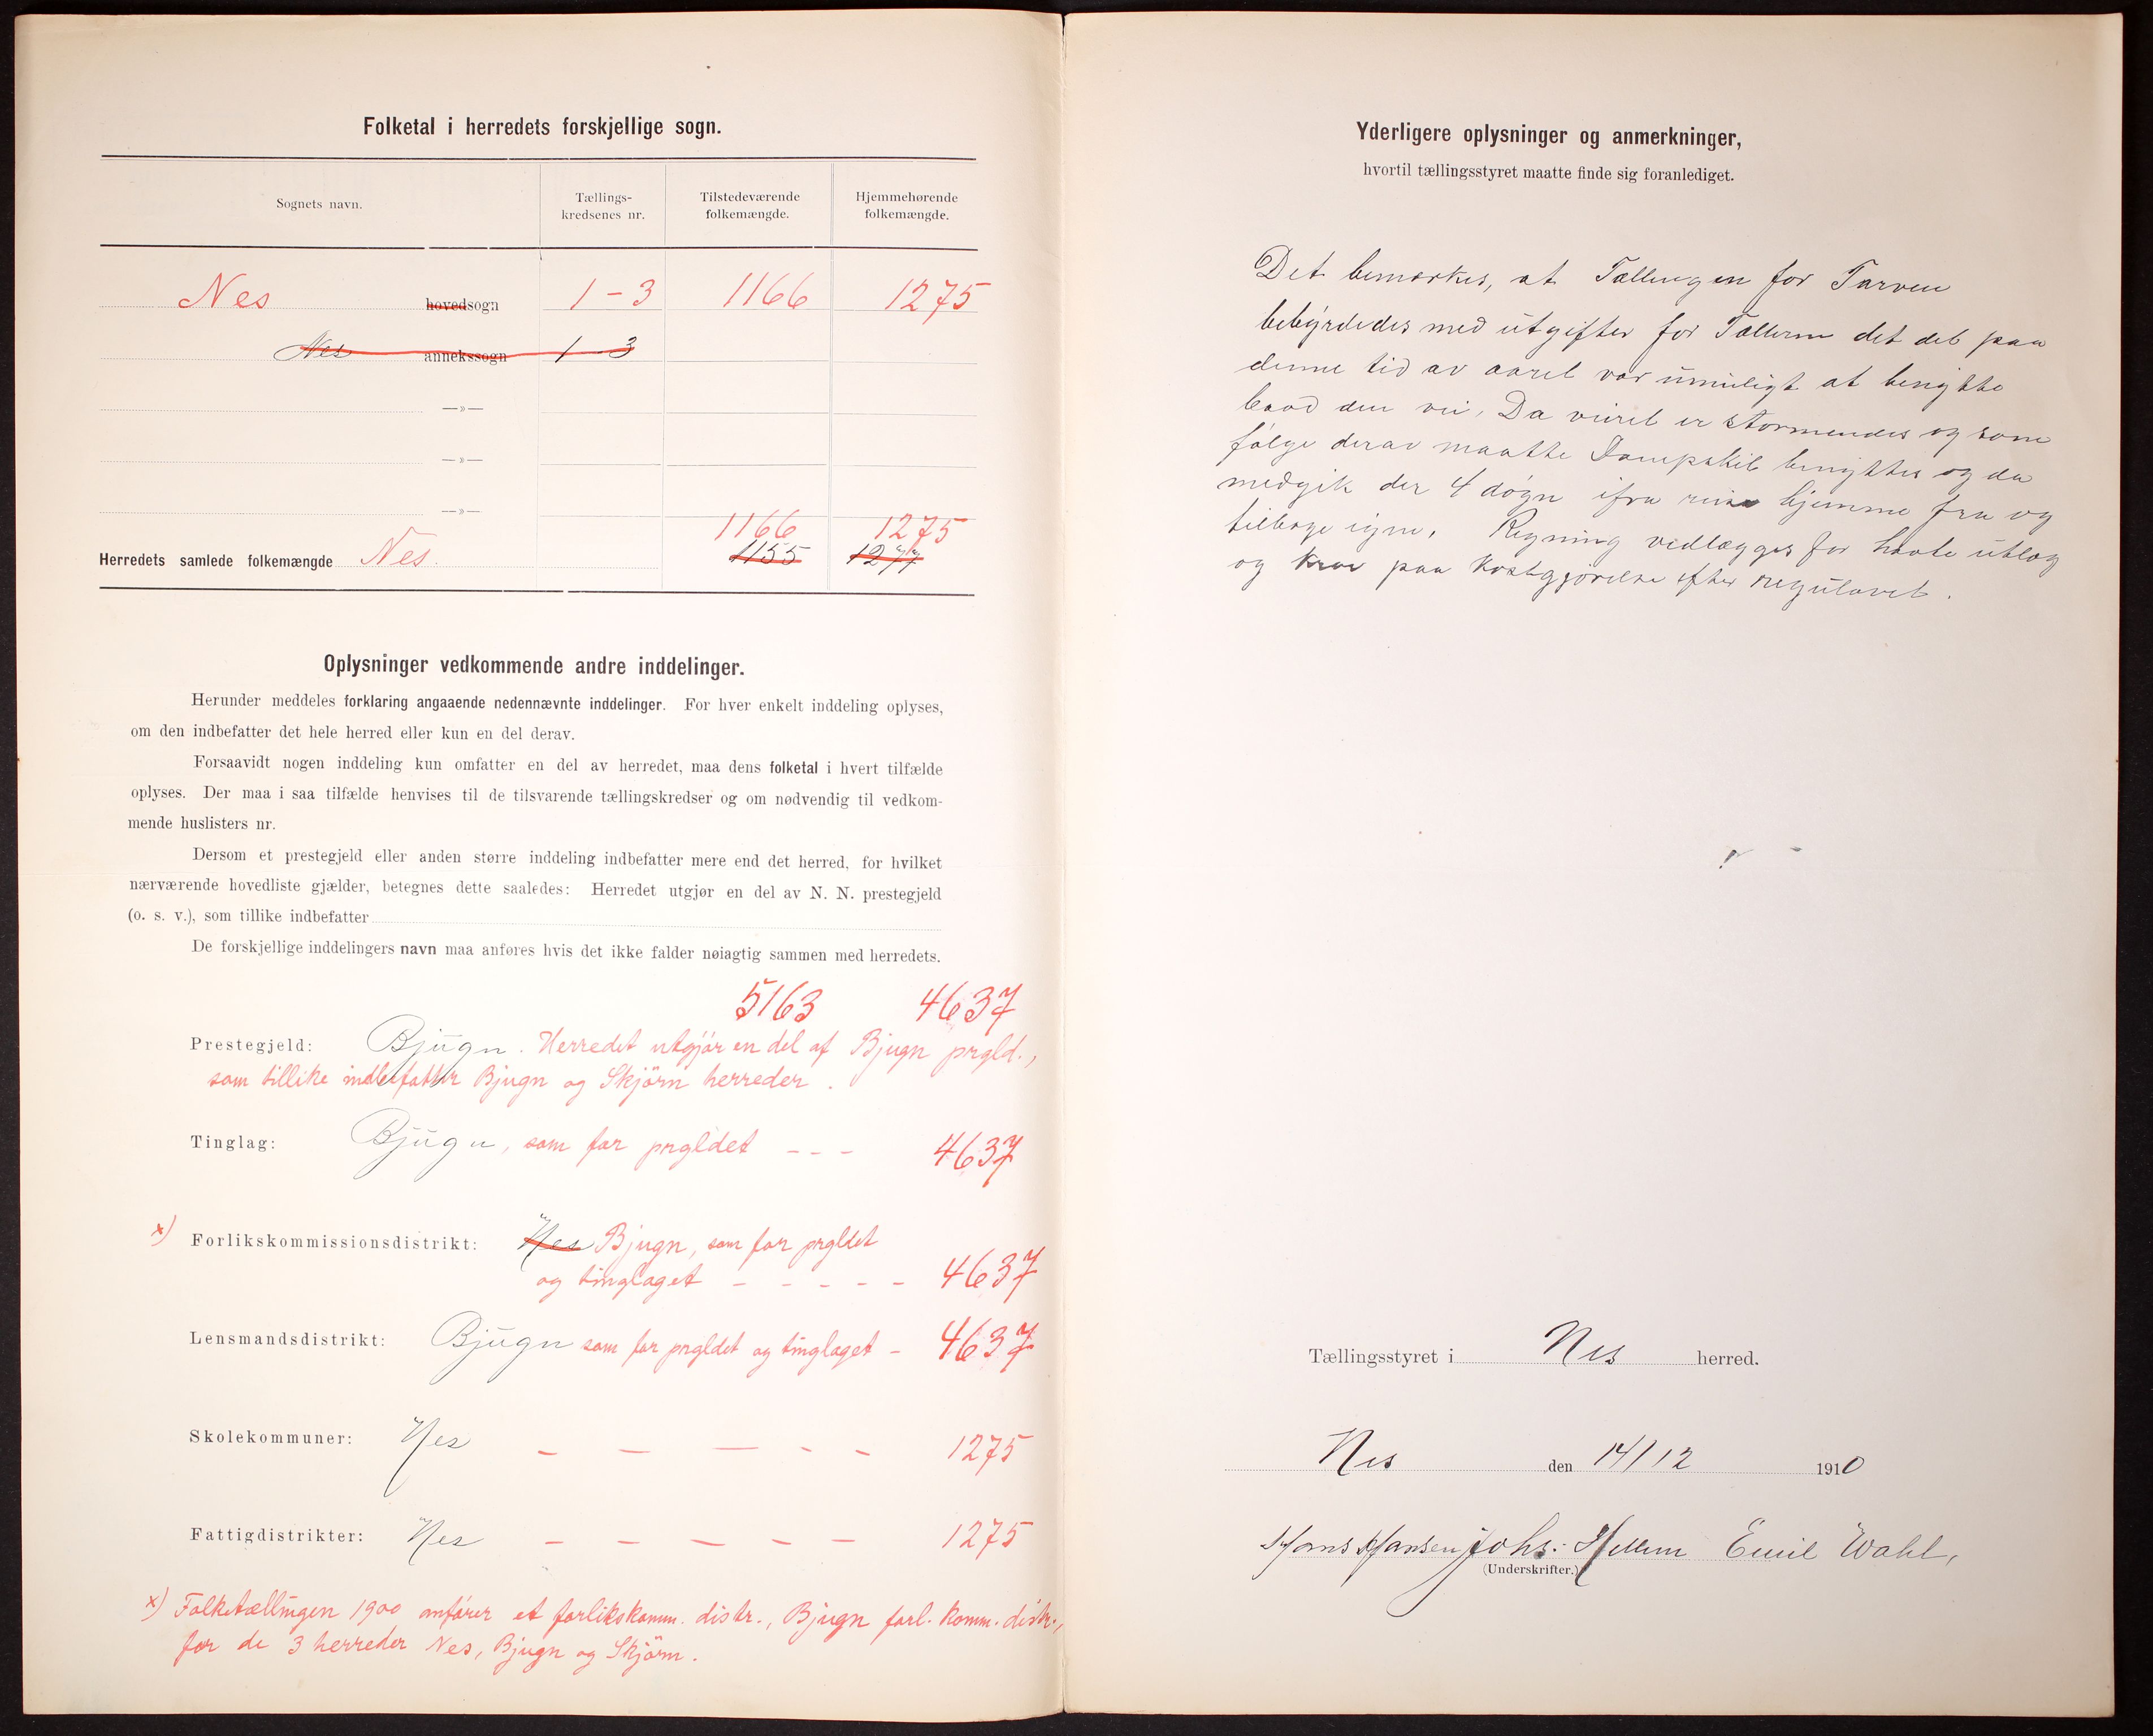 Folketal i herredets forskjellige sogn.
Sognets navn.
Tællings-
kredsenes nr.
Tilstedeværende
folkemængde.
Hjemmehørende
folkemængde.
Nes hovedsogn 1-3 1166 1275
Nes annekssogn 1-3
—»—
—»—
—»—
1166 1275
Herredets samlede folkemængde Nes. 1155 1277
Oplysninger vedkommende andre inddelinger.
Herunder meddeles forklaring angaaende nedennævnte inddelinger. For hver enkelt inddeling oplyses,
om den indbefatter det hele herred eller kun en del derav.
Forsaavidt nogen inddeling kun omfatter en del av herredet, maa dens folketal i hvert tilfælde
oplyses. Der maa i saa tilfælde henvises til de tilsvarende tællingskredser og om nødvendig til vedkom-
mende huslisters nr.
Dersom et prestegjeld eller anden større inddeling indbefatter mere end det herred, for hvilket
nærværende hovedliste gjælder, betegnes dette saaledes: Herredet utgjør en del av N. N. prestegjeld
(o. s. v.), som tillike indbefatter
De forskjellige inddelingers navn maa anføres hvis det ikke falder nøiagtig sammen med herredets.
5163 4637
Prestegjeld: Bjugn. Herredet utgjör en del af Bjugn prgld.,
som tillike indbefatter Bjugn og Skjörn herreder.
Tinglag: Bjugn, som for prgldet - - - 4637
x) Forlikskommissionsdistrikt: Nes Bjugn, som for prgldet
og tinglaget - - - - - 4637
Lensmandsdistrikt: Bjugn som for prgldet og tinglaget - 4637
Skolekommuner: Nes - - - - - 1275
Fattigdistrikter: Nes - - - - - 1275
x) Folketællingen 1900 anfører et forlikskomm. distr., Bjugn forl. komm. distr.,
for de 3 herreder Nes, Bjugn og Skjörn.
Yderligere oplysninger og anmerkninger,
hvortil tællingsstyret maatte finde sig foranlediget.
Det bemærkes, at Tællingen for Tarven
bebyrdedes med utgifter for Tælleren det det paa
denne tid av aaret var umuligt at benytte
baad den vei, Da veiret er stormendes og som
følge derav maatte Dampskib benyttes og da
medgik der 4 døgn ifra reise hjemme fra og
tilbage igen. Regning vedlægges for havte utlæg
og krav paa kostgjørelse efter regulavet.
Tællingsstyret i Nes herred.
Nes den 14/12 1910
Hans Hansen Johs. Hellem Emil Wahl,
(Underskrifter.)